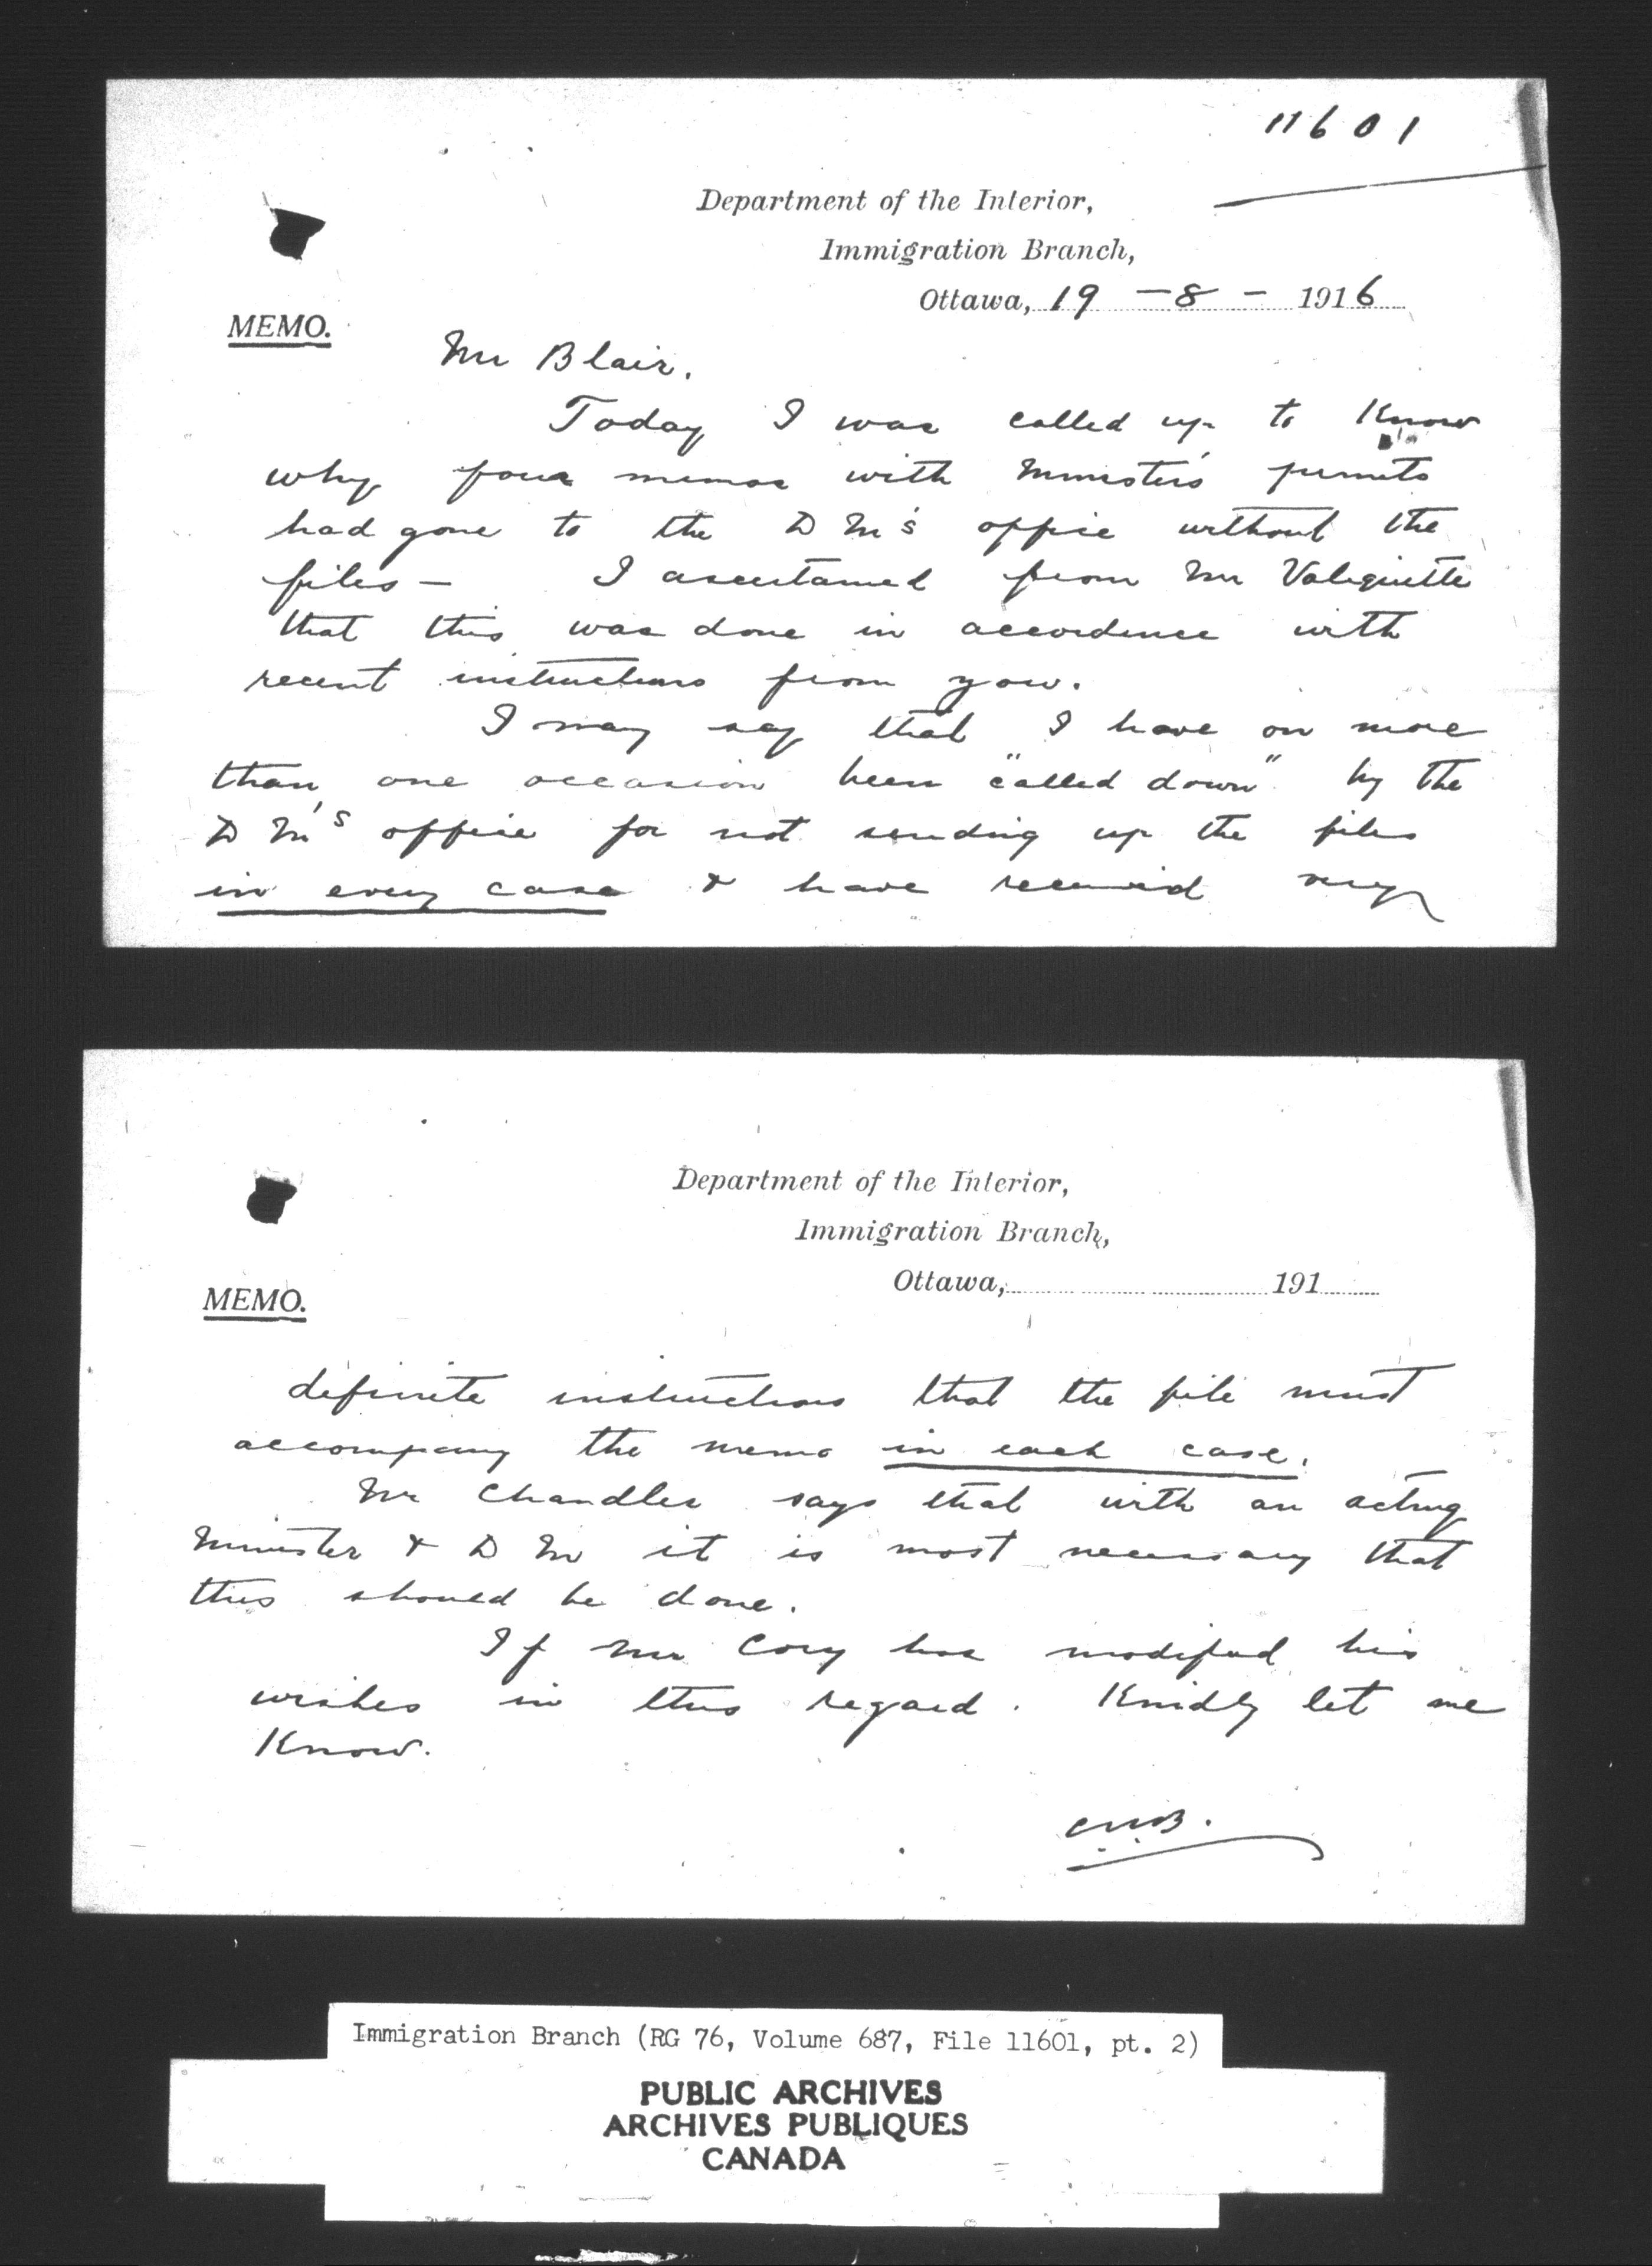 11601
Department of the Interior,
Immigration Branch,
Ottawa, 19 - 8 - 1916
MEMO.
Mr Blair.
Today I was called up to know
why four memos with Minister's permits
had gone to the D M's office without the
files — I ascertained from Mr Valiquette
that this was done in accordance with
recent instructions from you.
I may say that I have on more
than one occasion been "called down" by the
D M's office for not sending up the files
in every case & have received very
Department of the Interior,
Immigration Branch,
Ottawa, 191
MEMO.
definite instructions that the file must
accompany the memo in each case.
Mr Chandler says that with an acting
Minister & D M it is most necessary that
this should be done.
If Mr Cory has modified his
wishes in this regard. Kindly let me
know.
Immigration Branch (RG 76, Volume 687, File 11601, pt. 2)
PUBLIC ARCHIVES
ARCHIVES PUBLIQUES
CANADA